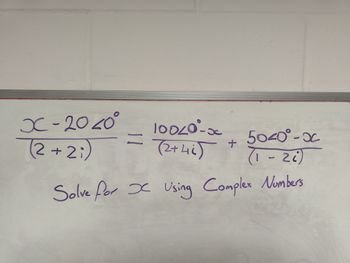 x - 20∠0° / (2 + 2i) = 100∠0° - x / (2 + 4i) + 50∠0° - x / (1 - 2i)
Solve for x Using Complex Numbers